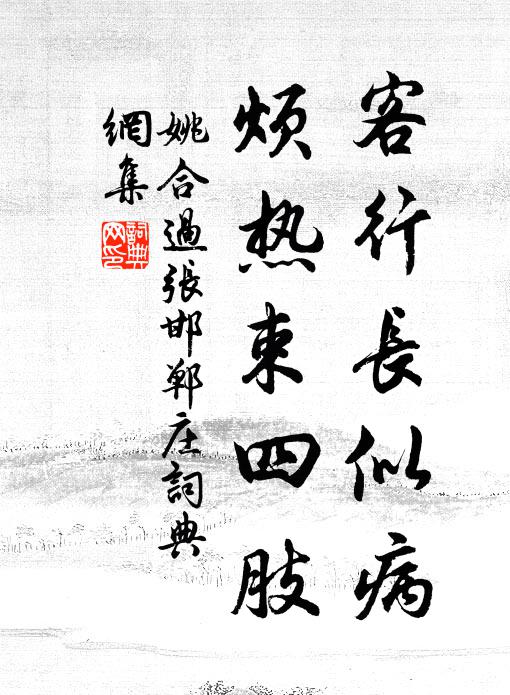 客行長似病
烦热束四肢
姚合過張邯郸庄詞典
網集
詞典
网印